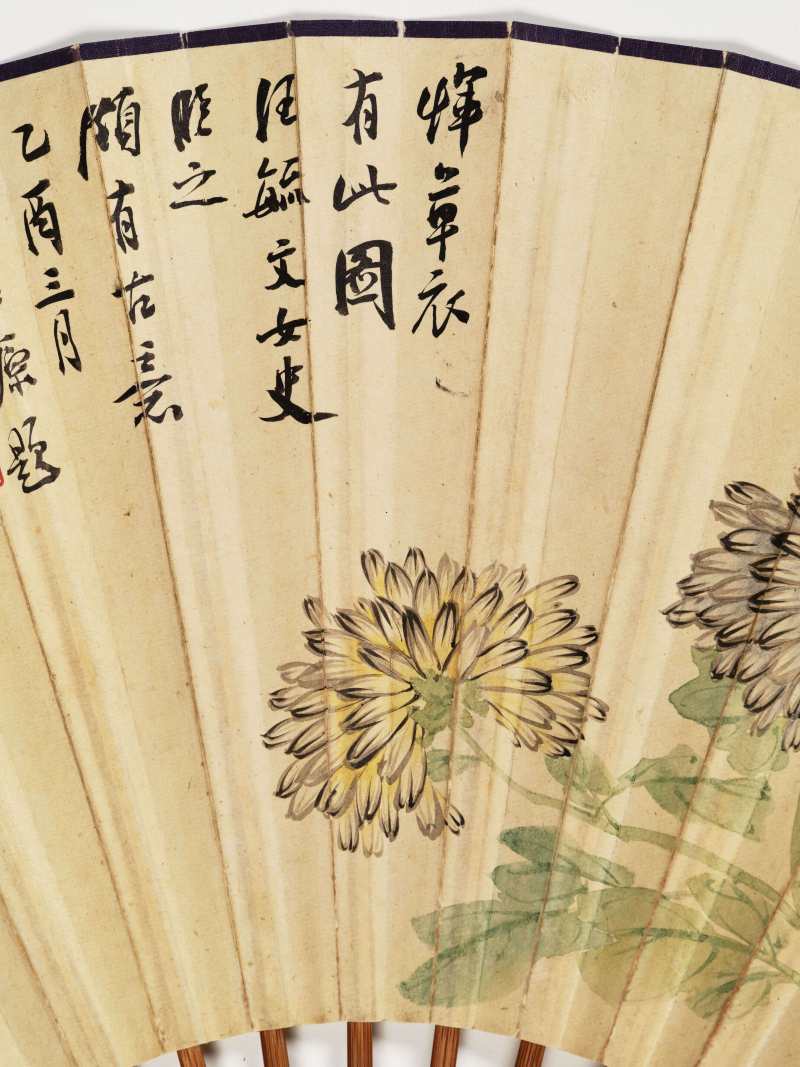 惲草衣
有此圖
汪毓文女史
臨之
頗有古意
乙酉三月
題